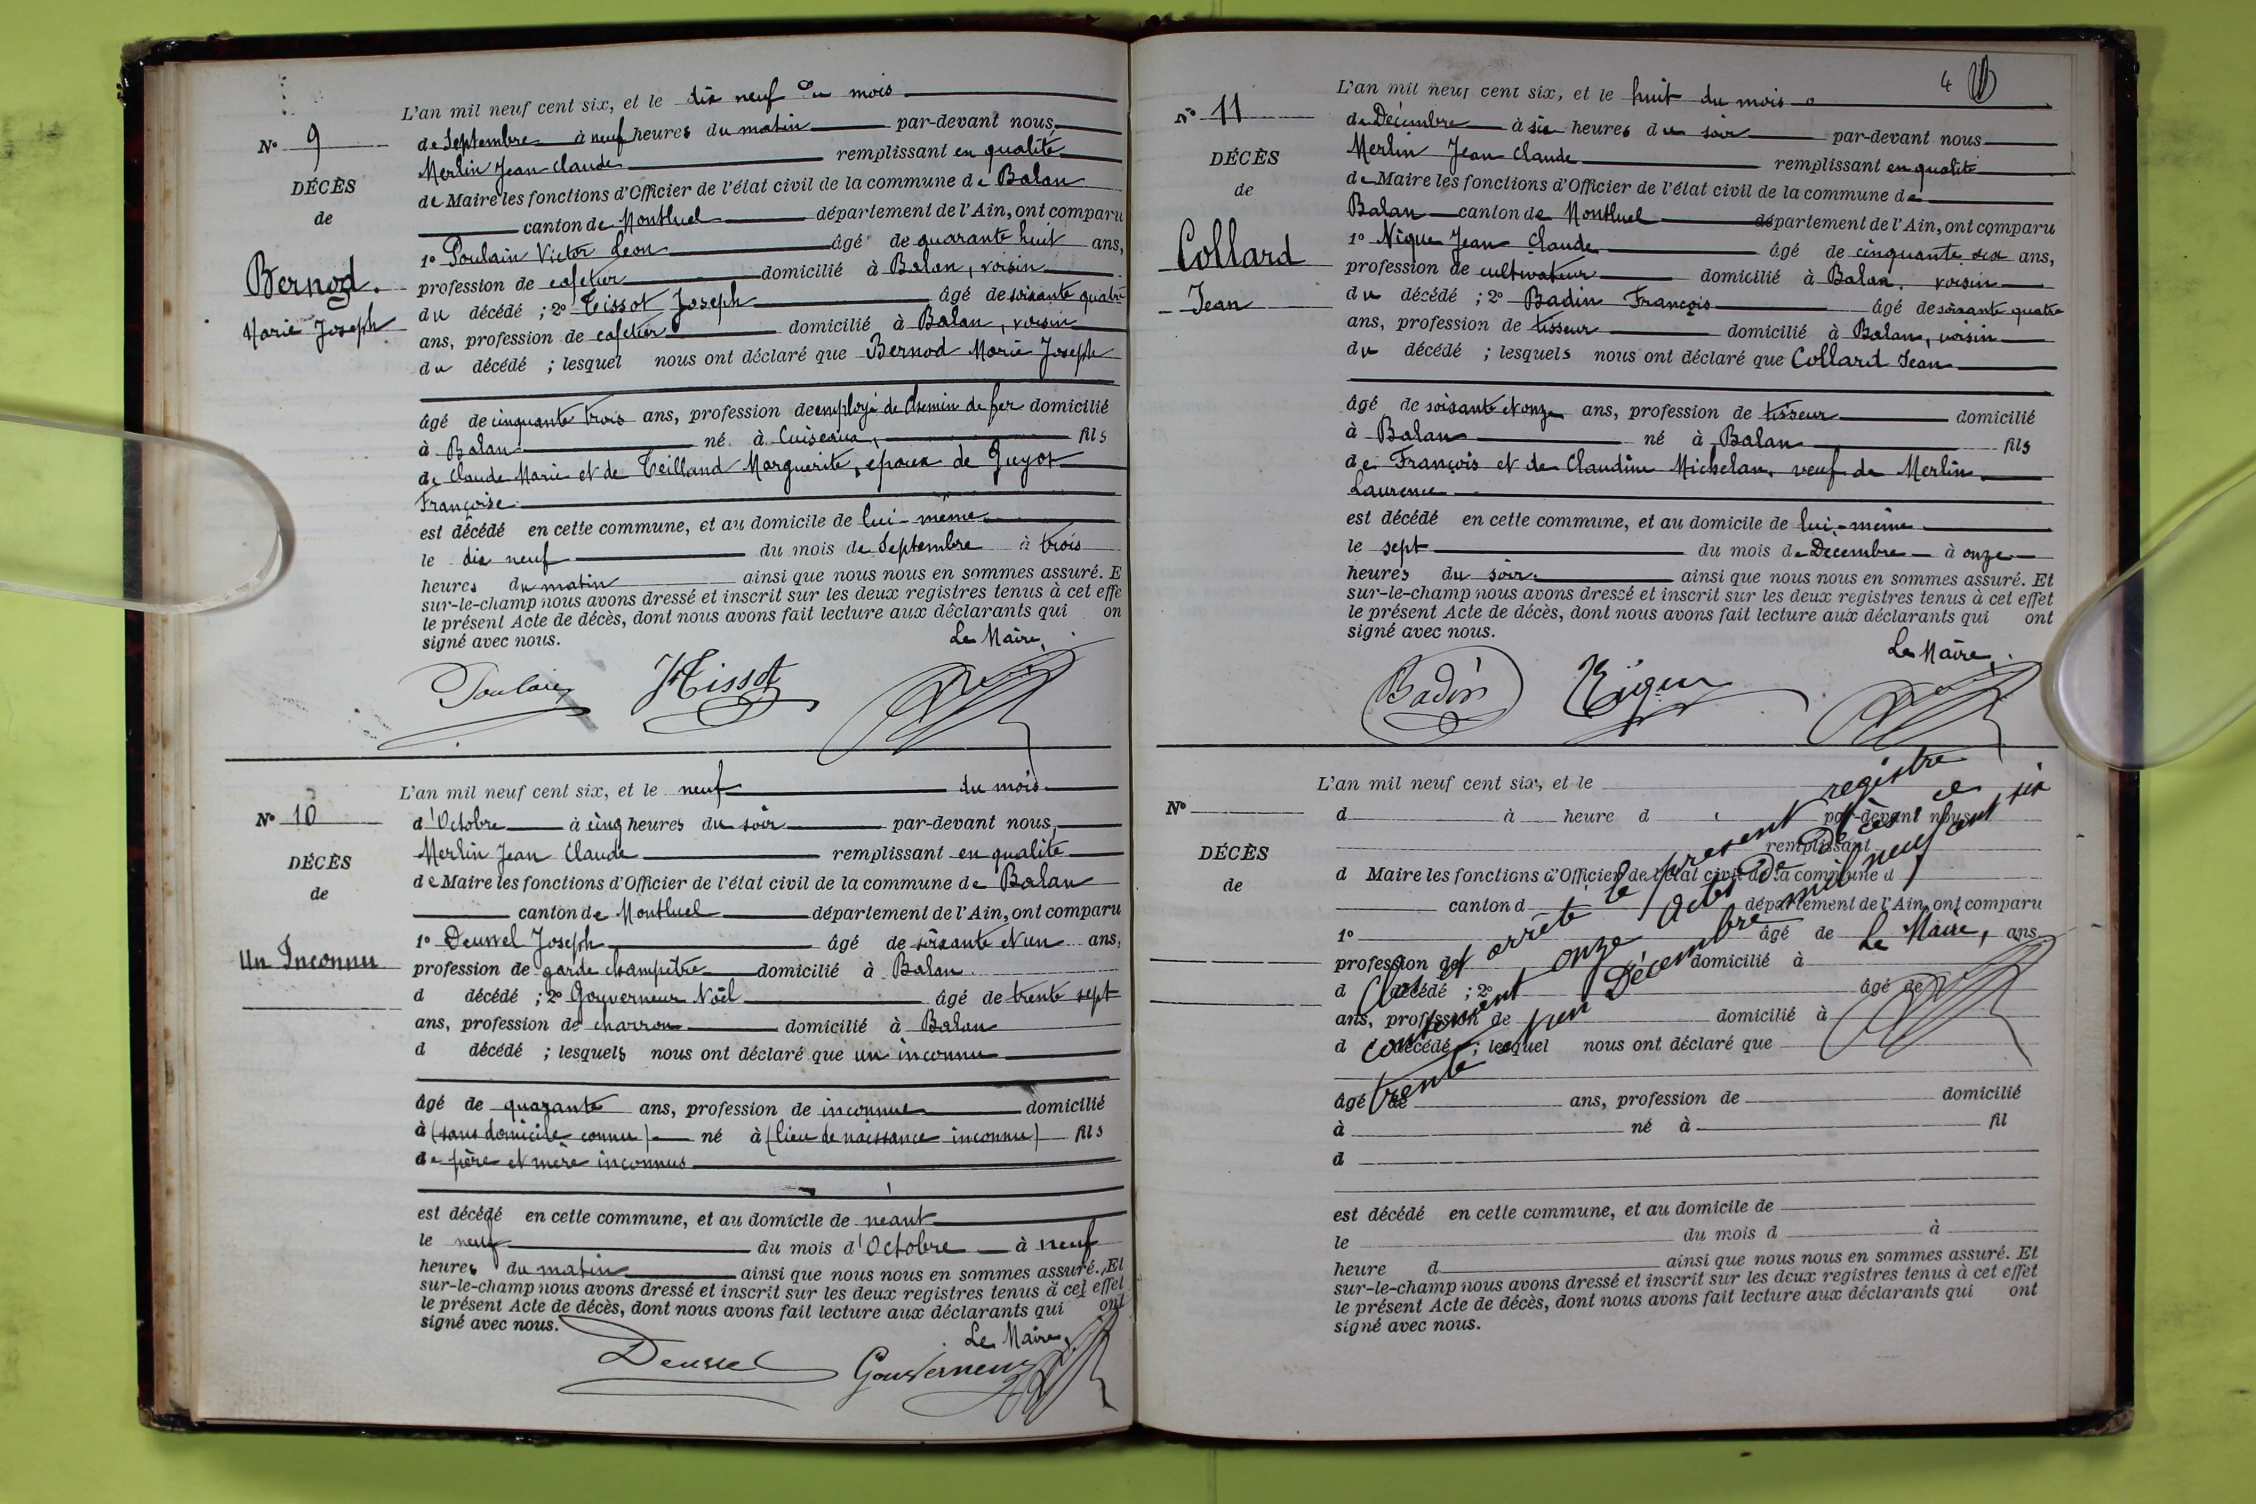 L'an mil neuf cent six, et le dix neuf du mois
N° 9
de Septembre à neuf heures du matin par-devant nous
Merlin Jean Claude remplissant en qualité
DÉCÈS
de Maire les fonctions d'Officier de l'état civil de la commune de Balan
de
canton de Montluel département de l'Ain, ont comparu
1° Poulain Victor Léon âgé de quarante huit ans,
Bernod.
profession de cafetier domicilié à Balan, voisin
du décédé ; 2° Tissot Joseph âgé de soixante quatre
Marie Joseph
ans, profession de cafetier domicilié à Balan, voisin
du décédé ; lesquel nous ont déclaré que Bernod Marie Joseph
âgé de cinquante trois ans, profession de employé de Chemin de fer domicilié
à Balan né à Cuiseaux, fils
de Claude Marie et de Teilland Marguerite, époux de Guyot
Françoise
est décédé en cette commune, et au domicile de lui-même
le dix neuf du mois de Septembre à trois
heures du matin ainsi que nous nous en sommes assuré. E
sur-le-champ nous avons dressé et inscrit sur les deux registres tenus à cet effe
le présent Acte de décès, dont nous avons fait lecture aux déclarants qui on
signé avec nous. Le Maire,
Poulain JTissot
L'an mil neuf cent six, et le neuf du mois
N° 10
d'Octobre à cinq heures du soir par-devant nous,
Merlin Jean Claude remplissant en qualité
DÉCÈS
de Maire les fonctions d'Officier de l'état civil de la commune de Balan
de
canton de Montluel département de l'Ain, ont comparu
1° Deurvel Joseph, âgé de soixante et un ans,
Un Inconnu
profession de garde champêtre domicilié à Balan
d décédé ; 2° Gouverneur Noël âgé de trente sept
ans, profession de charron domicilié à Balan
d décédé ; lesquels nous ont déclaré que un inconnu
âgé de quarante ans, profession de inconnue domicilié
à (sans domicile connu) né à (lieu de naissance inconnu) fils
de père et mère inconnus
est décédé en cette commune, et au domicile de néant
le neuf du mois d'Octobre à neuf
heures du matin ainsi que nous nous en sommes assuré. Et
sur-le-champ nous avons dressé et inscrit sur les deux registres tenus à cet effet
le présent Acte de décès, dont nous avons fait lecture aux déclarants qui ont
signé avec nous. Le Maire,
Gouverneur
4
L'an mil neuf cent six, et le huit du mois
N° 11
de Décembre à six heures du soir par-devant nous
Merlin Jean Claude remplissant en qualité
DÉCÈS
de Maire les fonctions d'Officier de l'état civil de la commune de
de
Balan canton de Montluel département de l'Ain, ont comparu
1° Nique Jean Claude âgé de cinquante six ans,
Collard
profession de cultivateur domicilié à Balan, voisin
du décédé ; 2° Badin François âgé de soixante quatre
Jean
ans, profession de tisseur domicilié à Balan, voisin
du décédé ; lesquels nous ont déclaré que Collard Jean
âgé de soixante et onze ans, profession de tisseur domicilié
à Balan né à Balan fils
de François et de Claudine Michelan, veuf de Merlin
Laurence
est décédé en cette commune, et au domicile de lui-même
le sept du mois de Décembre à onze
heures du soir. ainsi que nous nous en sommes assuré. Et
sur-le-champ nous avons dressé et inscrit sur les deux registres tenus à cet effet
le présent Acte de décès, dont nous avons fait lecture aux déclarants qui ont
signé avec nous.
Le Maire,
Badin
L'an mil neuf cent six, et le
N°
d à heure d par-devant nous
remplissant
DÉCÈS
d Maire les fonctions d'Officier de l'état civil de la commune d
de
canton d département de l'Ain, ont comparu
1° âgé de ans,
profession de domicilié à
d décédé ; 2° âgé de
ans, profession de domicilié à
d décédé ; lesquel nous ont déclaré que
Clos et arrêté le présent registre
contenant onze actes de Décès ce
trente et un Décembre mil neuf cent six
Le Maire,
âgé de ans, profession de domicilié
à né à fil
d
est décédé en cette commune, et au domicile de
le du mois d à
heure d ainsi que nous nous en sommes assuré. Et
sur-le-champ nous avons dressé et inscrit sur les deux registres tenus à cet effet
le présent Acte de décès, dont nous avons fait lecture aux déclarants qui ont
signé avec nous.